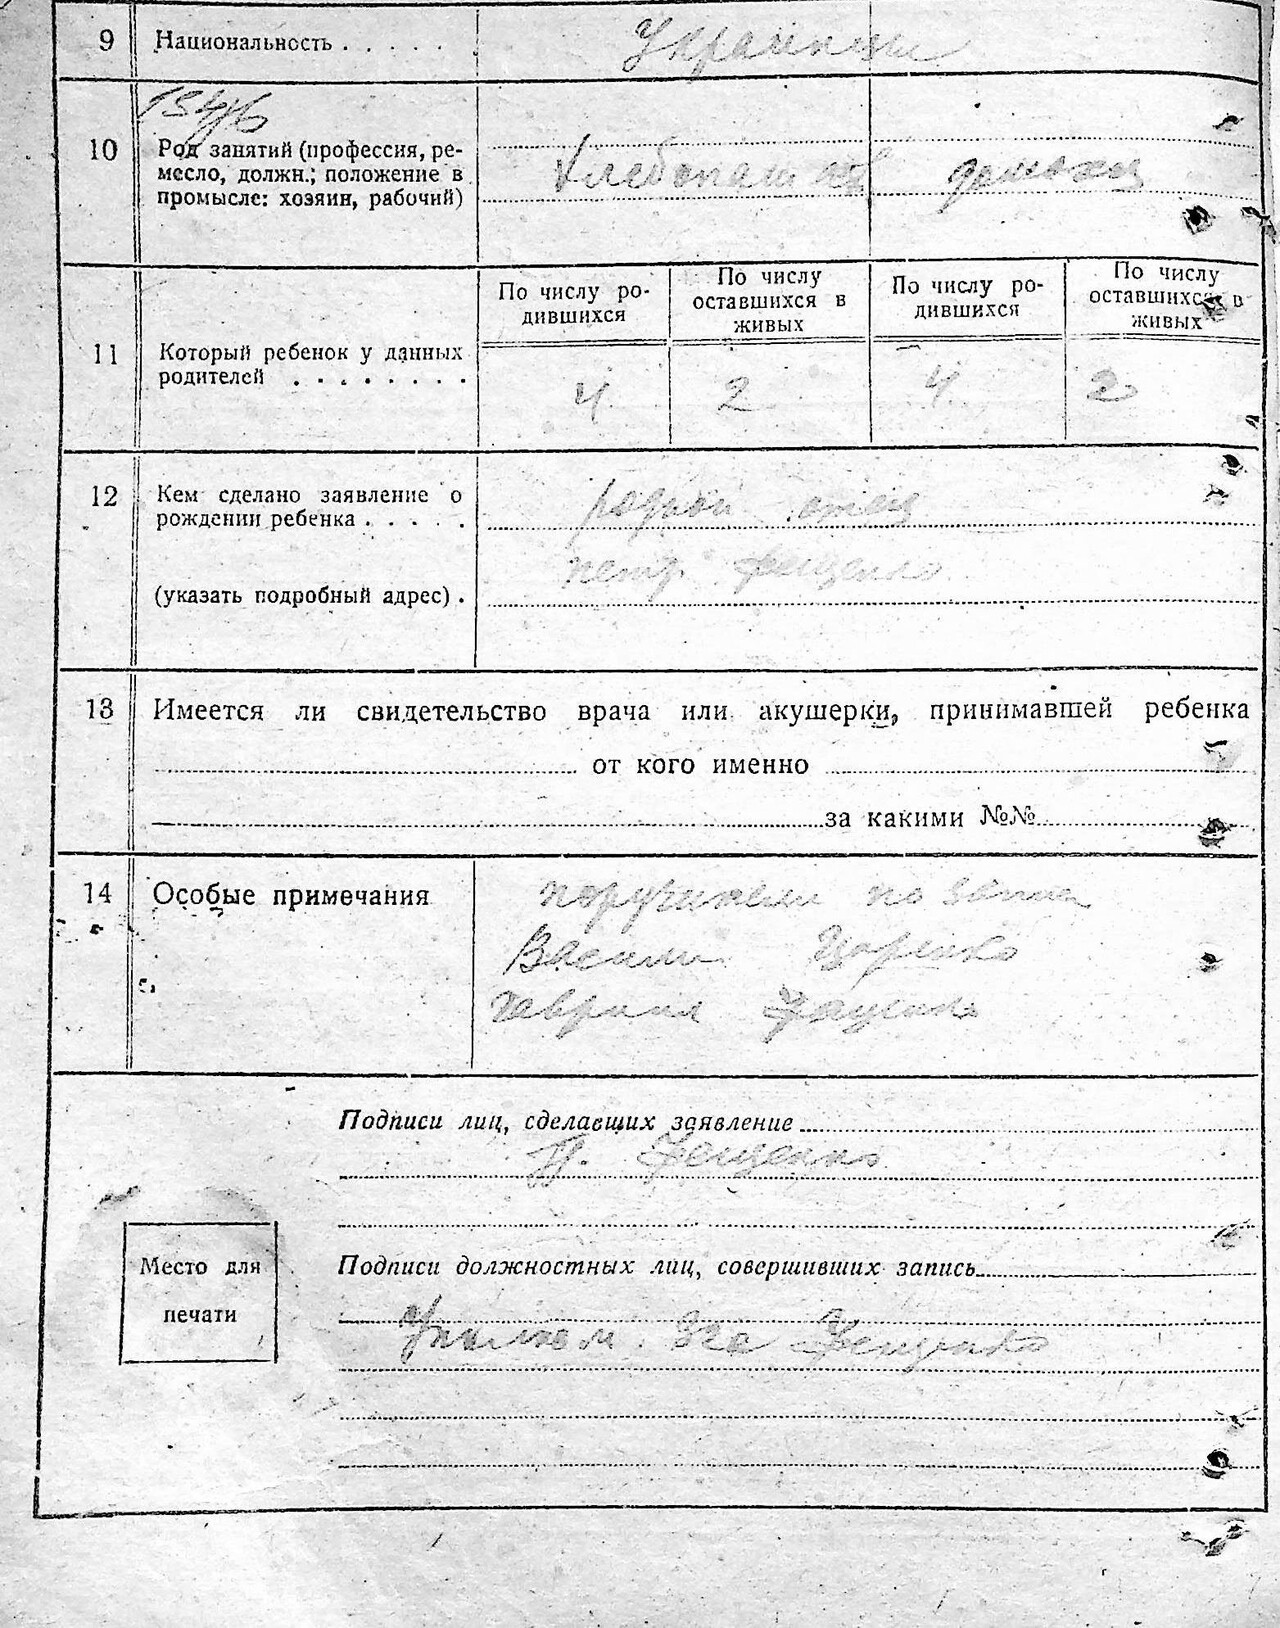 9 Национальность . . . . . Украинцы
10 Род занятий (профессия, ре-
месло, должн.; положение в
промысле: хозяин, рабочий)
Хлебопашев домохоз
11 Который ребенок у данных
родителей . . . . . . . .
По числу ро-
дившихся
По числу
оставшихся в
живых
По числу ро-
дившихся
По числу
оставшихся в
живых
4 2 4 2
12 Кем сделано заявление о
рождении ребенка . . . . .
(указать подробный адрес) .
родной отец
петр Фещенко
13 Имеется ли свидетельство врача или акушерки, принимавшей ребенка
от кого именно
за какими №№
14 Особые примечания
поручители по
Василий
гавриил Фещенко
Подписи лиц, сделавших заявление
П. Фещенко
Подписи должностных лиц, совершивших запись
Фещенко
Место для
печати